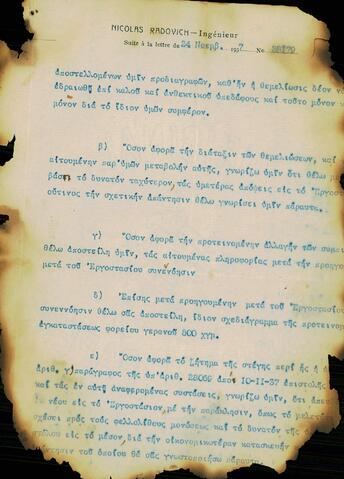 NICOLAS RADOVICH — Ingénieur
Suite à la lettre du 24 Νοεμβ. 1937 No
ἀποστελλομένων ὑμῖν προδιαγραφῶν, καθ'ἥν ἡ θεμελίωσις δέον νά
ἑδραιωθῇ ἐπί καλοῦ καί ἀνθεκτικοῦ ὑπεδάφους καί τοῦτο μόνον κ
μόνον διά τό ἴδιον ὑμῶν συμφέρον.
β) Ὅσον ἀφορᾶ τήν διάταξιν τῶν θεμελιώσεων, καί
αἰτουμένην παρ'ὑμῶν μεταβολήν αὐτῆς, γνωρίζω ὑμῖν ὅτι θέλω μ
βάσει τό δυνατόν ταχύτερον, τάς ὑμετέρας ἀπόψεις εἰς τό Ἐργοστ
οὗτινος τήν σχετικήν ἀπάντησιν θέλω γνωρίσει ὑμῖν πάραυτα.
γ) Ὅσον ἀφορᾶ τήν προτεινομένην ἀλλαγήν τῶν
θέλω ἀποστείλῃ ὑμῖν, τάς αἰτουμένας πληροφορίας μετά τήν προηγ
μετά τοῦ Ἐργοστασίου συνενόησιν
δ) Ἐπίσης μετά προηγουμένην μετά τοῦ Ἐργοστασίου
συνεννόησιν θέλω σᾶς ἀποστείλῃ, ἴδιον σχεδιάγραμμα τῆς προτεινομ
ἐγκαταστάσεως φορείου γερανοῦ 500 χγμ.
ε) Ὅσον ἀφορᾶ τό ζήτημα τῆς στέγης περί ἧς ἡ
ἀριθ. γ)παράγραφος τῆς ὑπ'ἀριθ. 28069 ἀπό 10-11-37 ἐπιστολῆς
καί τάς ἐν αὐτῇ ἀναφερομένας συστάσεις, γνωρίζω ὑμῖν, ὅτι
νέου εἰς τό Ἐργοστάσιον, μέ τήν παράκλησιν, ὅπως τό
σχέσει πρός τούς φελλολίθους μονώσεως καί τό δυνατόν τῆς
εἰς τό μέσον, διά τήν οἰκονομικωτέραν κατασκευήν
τοῦ ὁποίου θά σᾶς γνωστοποιήσω πάραυτα